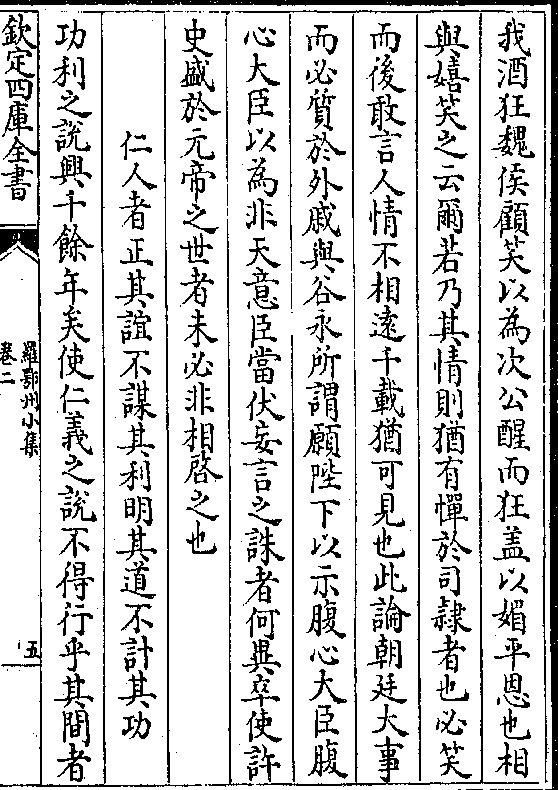 我酒狂魏侯顧笑以為次公醒而狂盖以媚平恩也相
與嬉笑之云爾若乃其情則猶有憚於司隷者也必笑
而後敢言人情不相逺千載猶可見也此論朝廷大事
而必質於外戚與谷永所謂願陛下以示腹心大臣腹
心大臣以為非天意臣當伏妄言之誅者何異卒使許
史盛於元帝之世者未必非相啓之也
仁人者正其誼不謀其利明其道不計其功
功利之説興千餘年矣使仁義之説不得行乎其間者
欽定四庫全書
羅鄂州小集
卷二
五